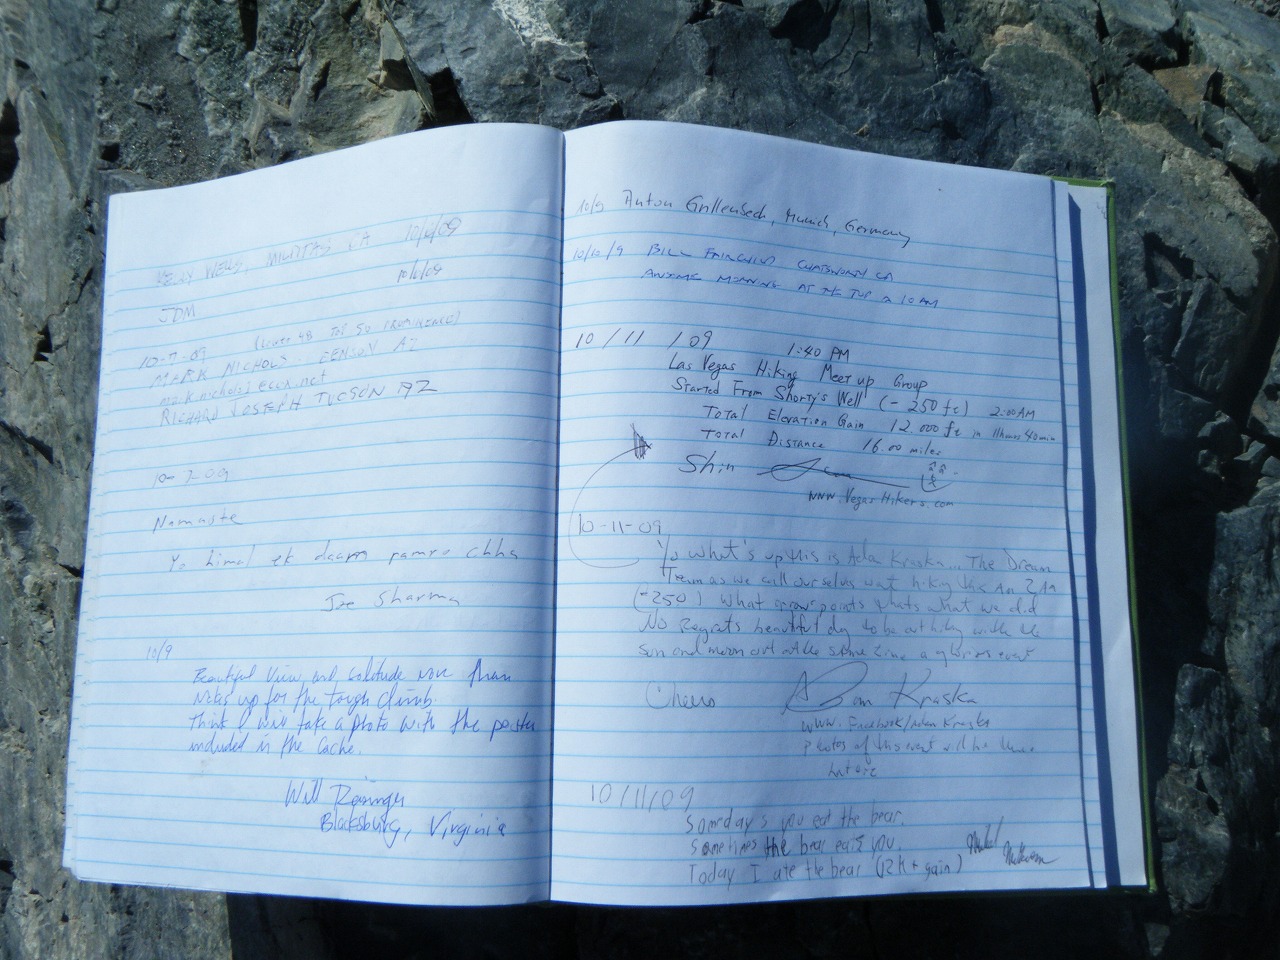 WELLS, MILPITAS CA 10/6/09
10/6/09
JDM
10-7-09 (Lower 48 Top 50 Prominence)
MARK NICHOLS BENSON AZ
RICHARD JOSEPH TUCSON AZ
10-7-09
Namaste
Yo himal ek daam ramro chha
Joe Sharma
10/9
Beautiful View and solitude more than
makes up for the tough climb.
Think I will take a photo with the poster
included in the cache.
Will
Blacksburg, Virginia
10/9 Anton Munich, Germany
10/10/9 BILL FAIRCHILD CHATSWORTH CA
AWESOME MORNING AT THE TOP @ 10 AM
10/11/09 1:40 PM
Las Vegas Hiking Meet up Group
Started From Shorty's Well (-250 ft) 2:00AM
Total Elevation Gain 12,000 ft in 11hours 40min
Total Distance 16.00 miles
Shin
www.VegasHikers.com
10-11-09
Yo what's up this is Adam Kraska... The Dream
Team as we call ourselves went hiking this An 2 AM
(-250) What points thats what we did
No Regrets beautiful day to be out hiking with the
sun and moon out at the same time a glorious event
Cheers Adam Kraska
www.Facebook/Adam Kraska
photos of this event will be
10/11/09
Someday's you eat the bear,
Sometimes the bear eats you.
Today I ate the bear (12K+ gain)